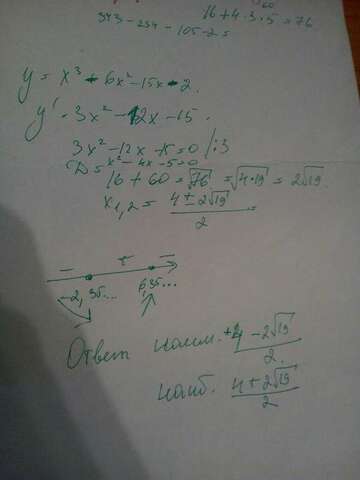 16+4·3·5=76
343-294-105-2=
y = x³ - 6x² - 15x - 2.
y' = 3x² - 12x - 15.
3x² - 12x - 15 = 0 /:3
x² - 4x - 5 = 0
D = 16 + 60 = √76 = √4·19 = 2√19.
x₁,₂ = 4 ± 2√19 / 2 =
- + -
-2,35... 6,35...
Ответ наим. +4 - 2√19 / 2.
наиб. 4 + 2√19 / 2